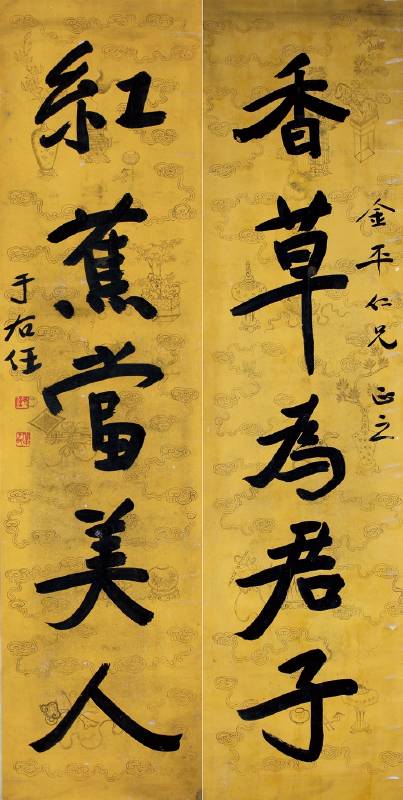 金平仁兄正之
香草為君子
紅蕉當美人
于右任